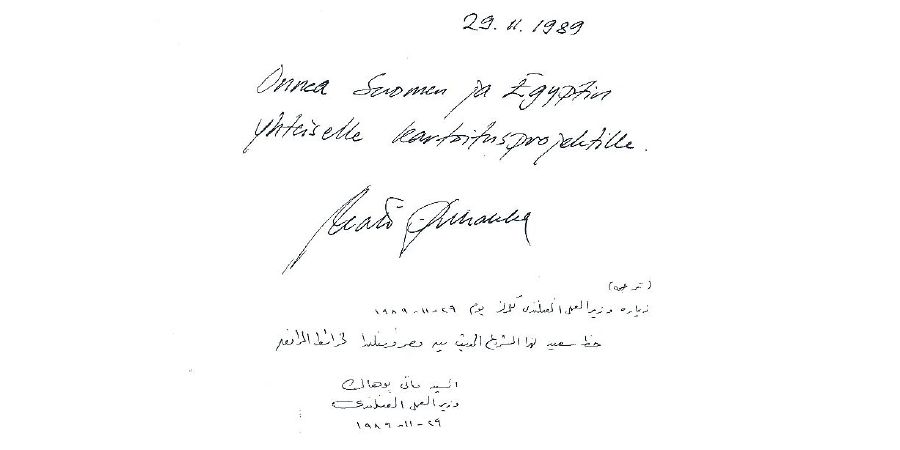 29.11.1989
Onnea Suomen ja Egyptin
yhteiselle kartoitusprojektille.
Matti
(ترجمة)
زيارة وزير العمل الفنلندى للمركز يوم ٢٩-١١-١٩٨٩
حظ سعيد لهذا المشروع بين مصر وفنلندا لخرائط
السيد ماتى بوهاك
وزير العمل الفنلندى
٢٩-١١-١٩٨٩